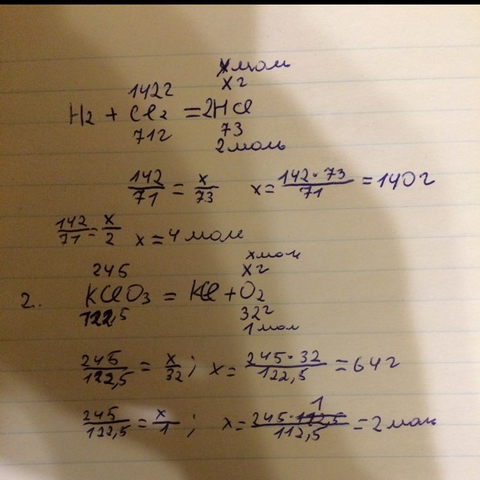 x мол
142г x г
H₂ + Cl₂ = 2HCl
71г 73
2 моль
142/71 = x/73 x = 142·73/71 = 140г
142/71 = x/2 x = 4 мол
x мол
245 x г
2. KClO₃ = KCl + O₂
122,5 32г
1 мол
245/122,5 = x/32; x = 245·32/122,5 = 64г
245/122,5 = x/1; x = 245·1/112,5 = 2 мол